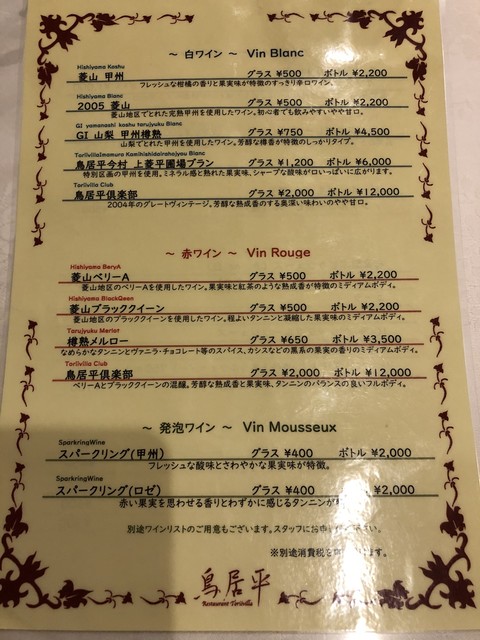 ～ 白ワイン ～ Vin Blanc
Hishiyama Koshu
菱山 甲州 グラス ¥500 ボトル ¥2,200
フレッシュな柑橘の香りと果実味が特徴のすっきり辛口ワイン。
Hishiyama Blanc
2005 菱山 グラス ¥500 ボトル ¥2,200
菱山地区でとれた完熟甲州を使用したワイン。初心者でも飲みやすいやや甘口。
GI yamanashi koshu tarujyuku Blanc
GI 山梨 甲州樽熟 グラス ¥750 ボトル ¥4,500
山梨でとれた甲州を使用したワイン。芳醇な樽香が特徴のしっかりタイプ。
TorivillaImamura Kamihishidairahojyou Blanc
鳥居平今村 上菱平圃場ブラン グラス ¥1,200 ボトル ¥6,000
特別区画の甲州を使用。ミネラル感と熟れた果実味、シャープな酸味が口いっぱいに広がります。
Torivilla Club
鳥居平倶楽部 グラス ¥2,000 ボトル ¥12,000
2004年のグレートヴィンテージ。芳醇な熟成香のする奥深い味わいのやや甘口。
～ 赤ワイン ～ Vin Rouge
Hishiyama BeryA
菱山ベリーA グラス ¥500 ボトル ¥2,200
菱山地区のベリーAを使用したワイン。果実味と紅茶のような熟成香が特徴のミディアムボディ。
Hishiyama BlackQeen
菱山ブラッククイーン グラス ¥500 ボトル ¥2,200
菱山地区のブラッククイーンを使用したワイン。程よいタンニンと凝縮した果実味のミディアムボディ。
Tarujyuku Merlot
樽熟メルロー グラス ¥650 ボトル ¥3,500
なめらかなタンニンとヴァニラ・チョコレート等のスパイス、カシスなどの黒系の果実の香りのミディアムボディ。
Torivilla Club
鳥居平倶楽部 グラス ¥2,000 ボトル ¥12,000
ベリーAとブラッククイーンの混醸。芳醇な熟成香と果実味、タンニンのバランスの良いフルボディ。
～ 発泡ワイン ～ Vin Mousseux
SparkringWine
スパークリング(甲州) グラス ¥400 ボトル ¥2,000
フレッシュな酸味とさわやかな果実味が特徴。
SparkringWine
スパークリング(ロゼ) グラス ¥400 ¥2,000
赤い果実を思わせる香りとわずかに感じるタンニンが
別途ワインリストのご用意もございます。スタッフにお申し付け下さい。
※別途消費税を頂戴します。
鳥居平
Restaurant Torivilla